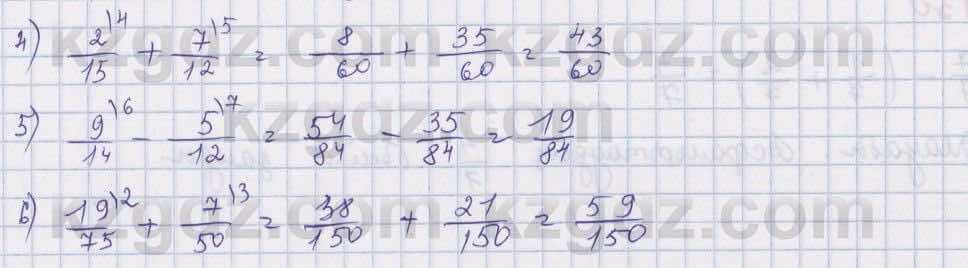 4) 2/15 ⁾⁴ + 7/12 ⁾⁵ = 8/60 + 35/60 = 43/60
5) 9/14 ⁾⁶ - 5/12 ⁾⁷ = 54/84 - 35/84 = 19/84
6) 19/75 ⁾² + 7/50 ⁾³ = 38/150 + 21/150 = 59/150
kzgdz.com
kzgdz.com
kzgdz.com